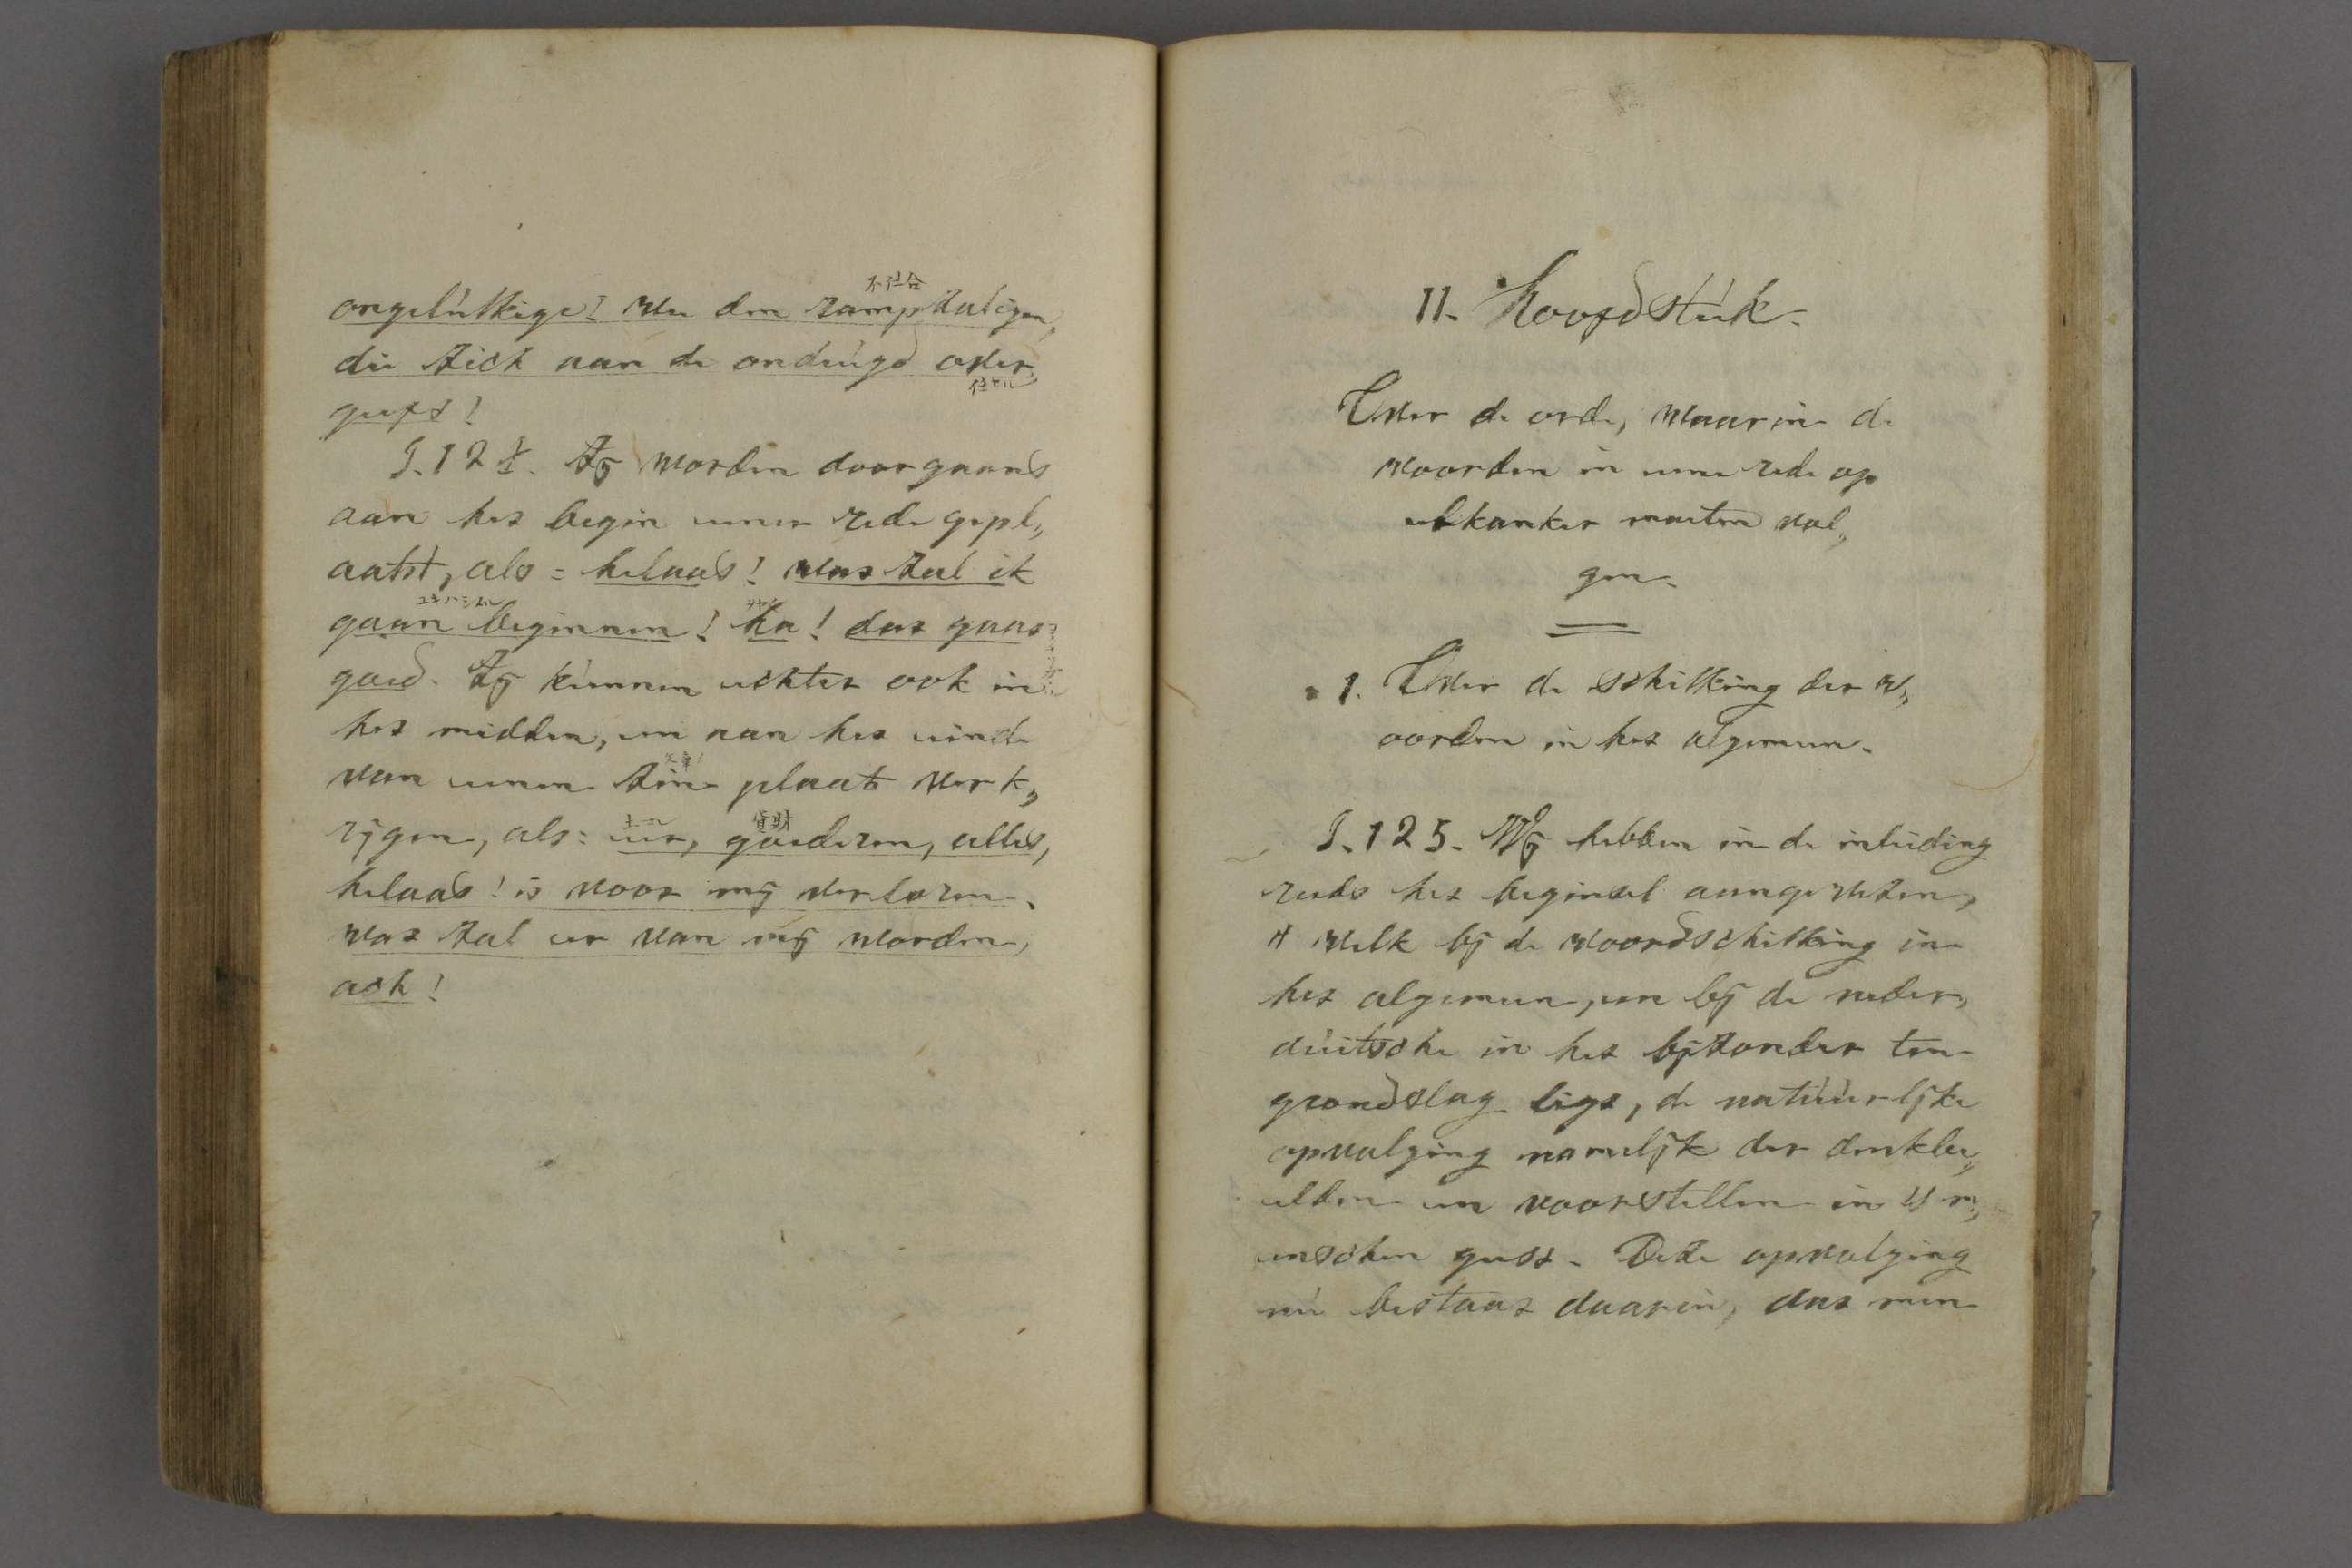 不仕合
ongelukkige! wee den rampzaligen,
die zich aan de ondeugd over„
geeft!
§. 124. Zij worden doorgaans
aan het begin eener rede gepl„
aatst, als = helaas! wat zal ik
gaan beginnen! ha! dat gaat
goed. Zij kunnen echter ook in
het midden, en aan het einde
van eenen zin plaats verk„
貨財
rijgen, als: eer, goederen, alles,
helaas! is voor mij verloren.
wat zal er van mij worden,
ach!
11. Hoofdstuk.
Over de orde, waarin de
woorden in eene rede op
elkander moeten vol„
gen.
1. Over de schikking der w„
oorden in het algemeen.
§. 125. Wij hebben in de inleiding
reeds het beginsel aangewezen,
't welk bij de woordschikking in
het algemeen, en bij de neder„
duitsche in het bijzonder ten
grondslag ligt, de natuurlijke
opvolging namelijk der denkbe„
elden en voorstellen in 's m„
enschen geest. Deze opvolging
nu bestaat daarin, dat men